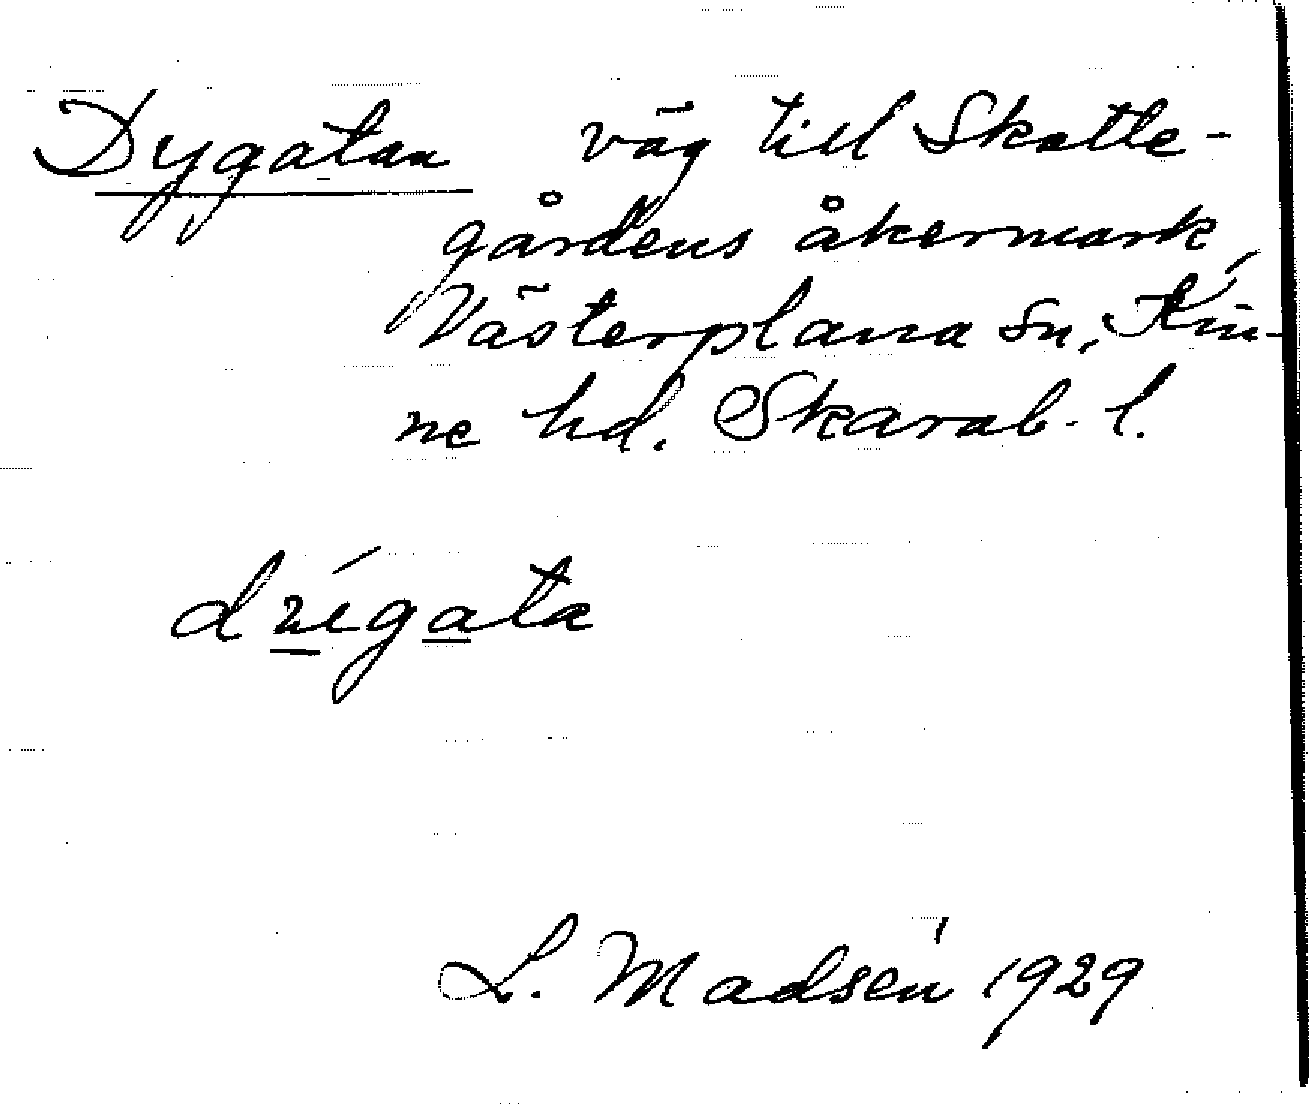 Dygatan väg till Skatte-
gårdens åkermark,
Västerplana sn, Kin-
ne hd. Skarab. l.
L. Madsén 1929